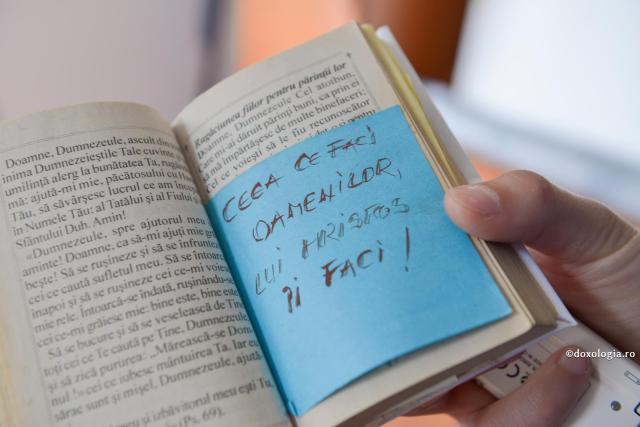 Doamne, Dumnezeule, ascult din
inima Dumnezeieștile Tale cuvinte,
umilință alerg la bunătatea Ta, rugân
mă: ajută-mi mie, păcătosului cu H
Tău, să săvârșesc lucrul ce am încep
în Numele Tău: al Tatălui și al Fiului
Sfântului Duh. Amin!
«Dumnezeule, spre ajutorul meu
aminte! Doamne, ca să-mi ajuți mie gr
bește! Să se rușineze și să se înfrunte
cei ce caută sufletul meu. Să se întoarcă
înapoi și să se rușineze cei ce-mi voie
mie rele. Întoarcă-se îndată, rușinându-
cei ce-mi grăiesc mie: bine este, bine este
Să se bucure și să se veselească de Tine
toți cei ce Te caută pe Tine, Dumnezeule
și să zică pururea: „Mărească-se Dom
nul!» cei ce iubesc mântuirea Ta. Iar eu
sărac sunt și mișel, Dumnezeule, ajută-
meu și izbăvitorul meu ești Tu,
(Ps. 69).
Rugăciunea fiilor pentru părinții lor
Doamne, Dumnezeule Cel atotbun,
care mi-ai dăruit părinți buni, ca prin ei
să mă împărtășesc de multe binefaceri,
Cel ce voiești să le fiu recunoscător
CEEA CE FACI
OAMENILOR,
LUI HRISTOS
ÎI FACI!
©doxologia.ro